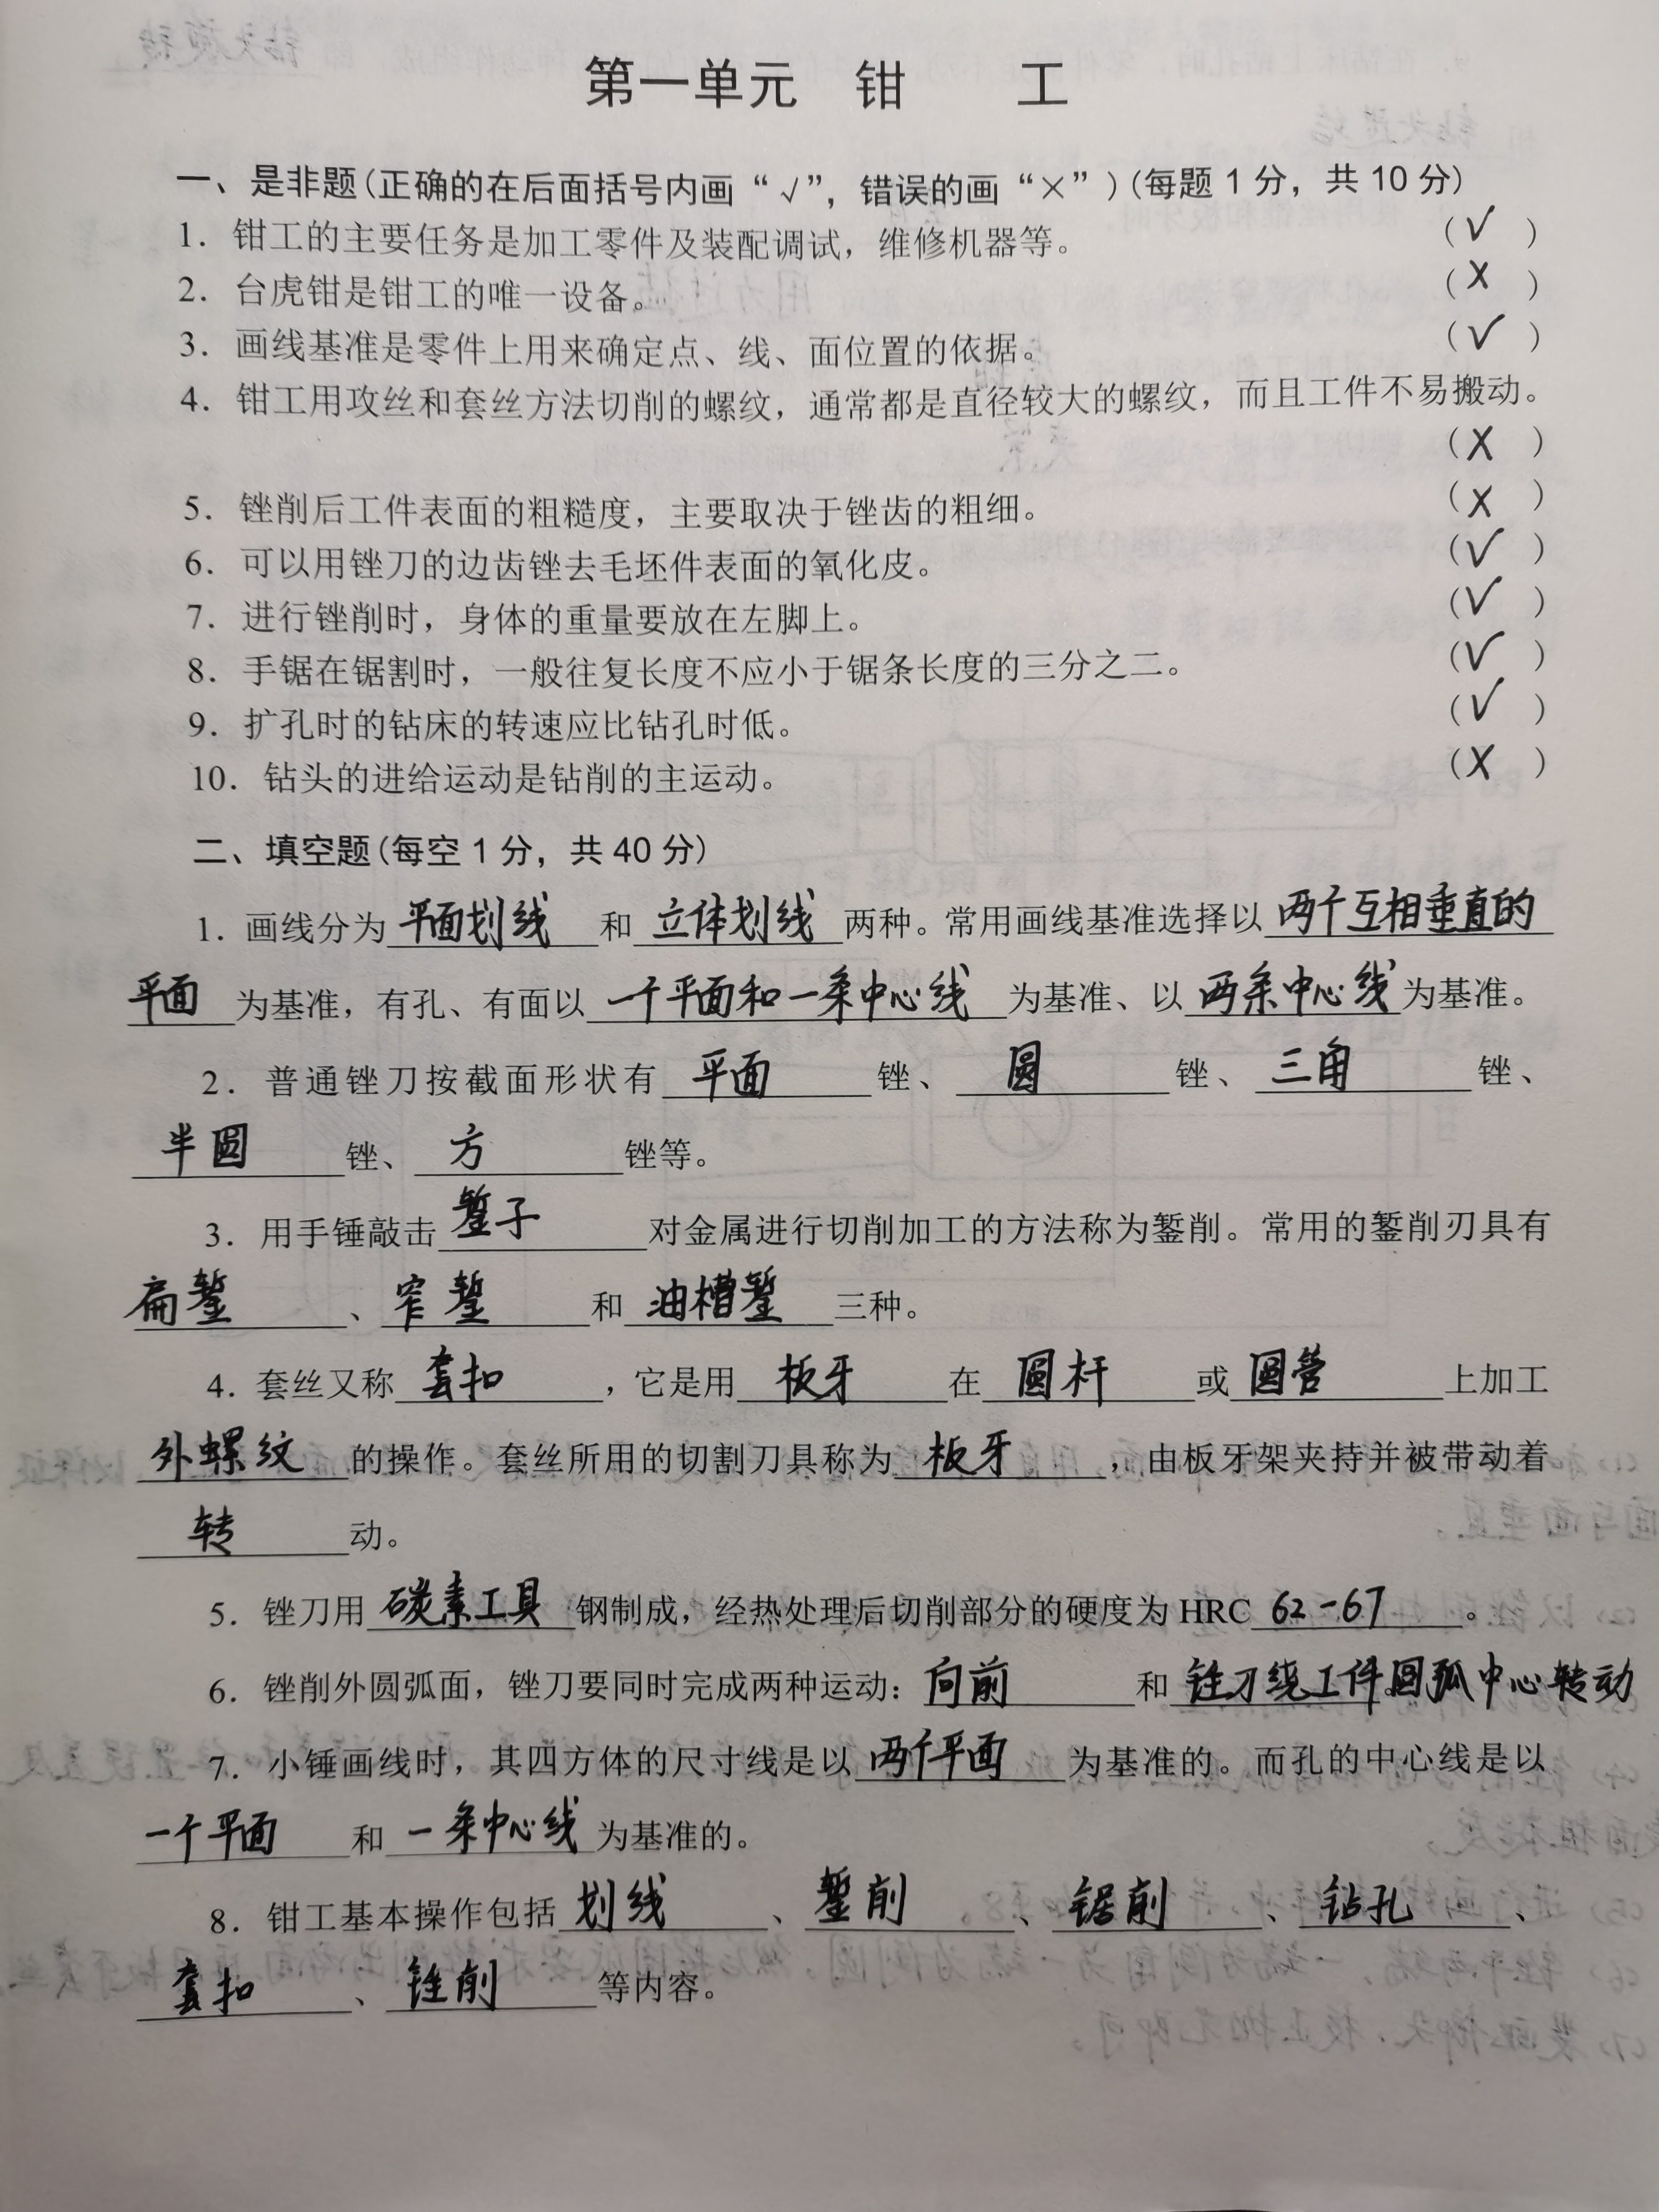 第一单元 钳 工
一、是非题(正确的在后面括号内画“√”，错误的画“×”)(每题 1 分，共 10 分)
1. 钳工的主要任务是加工零件及装配调试，维修机器等。 (√)
2. 台虎钳是钳工的唯一设备。 (X)
3. 画线基准是零件上用来确定点、线、面位置的依据。 (√)
4. 钳工用攻丝和套丝方法切削的螺纹，通常都是直径较大的螺纹，而且工件不易搬动。
(X)
5. 锉削后工件表面的粗糙度，主要取决于锉齿的粗细。 (X)
6. 可以用锉刀的边齿锉去毛坯件表面的氧化皮。 (√)
7. 进行锉削时，身体的重量要放在左脚上。 (√)
8. 手锯在锯割时，一般往复长度不应小于锯条长度的三分之二。 (√)
9. 扩孔时的钻床的转速应比钻孔时低。 (√)
10. 钻头的进给运动是钻削的主运动。 (X)
二、填空题(每空 1 分，共 40 分)
1. 画线分为 平面划线 和 立体划线 两种。常用画线基准选择以 两个互相垂直的
平面 为基准，有孔、有面以 一个平面和一条中心线 为基准、以 两条中心线 为基准。
2. 普通锉刀按截面形状有 平面 锉、 圆 锉、 三角 锉、
半圆 锉、 方 锉等。
3. 用手锤敲击 錾子 对金属进行切削加工的方法称为錾削。常用的錾削刃具有
扁錾 、 窄錾 和 油槽錾 三种。
4. 套丝又称 套扣 ，它是用 板牙 在 圆杆 或 圆管 上加工
外螺纹 的操作。套丝所用的切割刀具称为 板牙 ，由板牙架夹持并被带动着
转 动。
5. 锉刀用 碳素工具 钢制成，经热处理后切削部分的硬度为 HRC 62-67 。
6. 锉削外圆弧面，锉刀要同时完成两种运动: 向前 和 锉刀绕工件圆弧中心转动
7. 小锤画线时，其四方体的尺寸线是以 两个平面 为基准的。而孔的中心线是以
一个平面 和 一条中心线 为基准的。
8. 钳工基本操作包括 划线 、 錾削 、 锯削 、 钻孔 、
套扣 、 锉削 等内容。